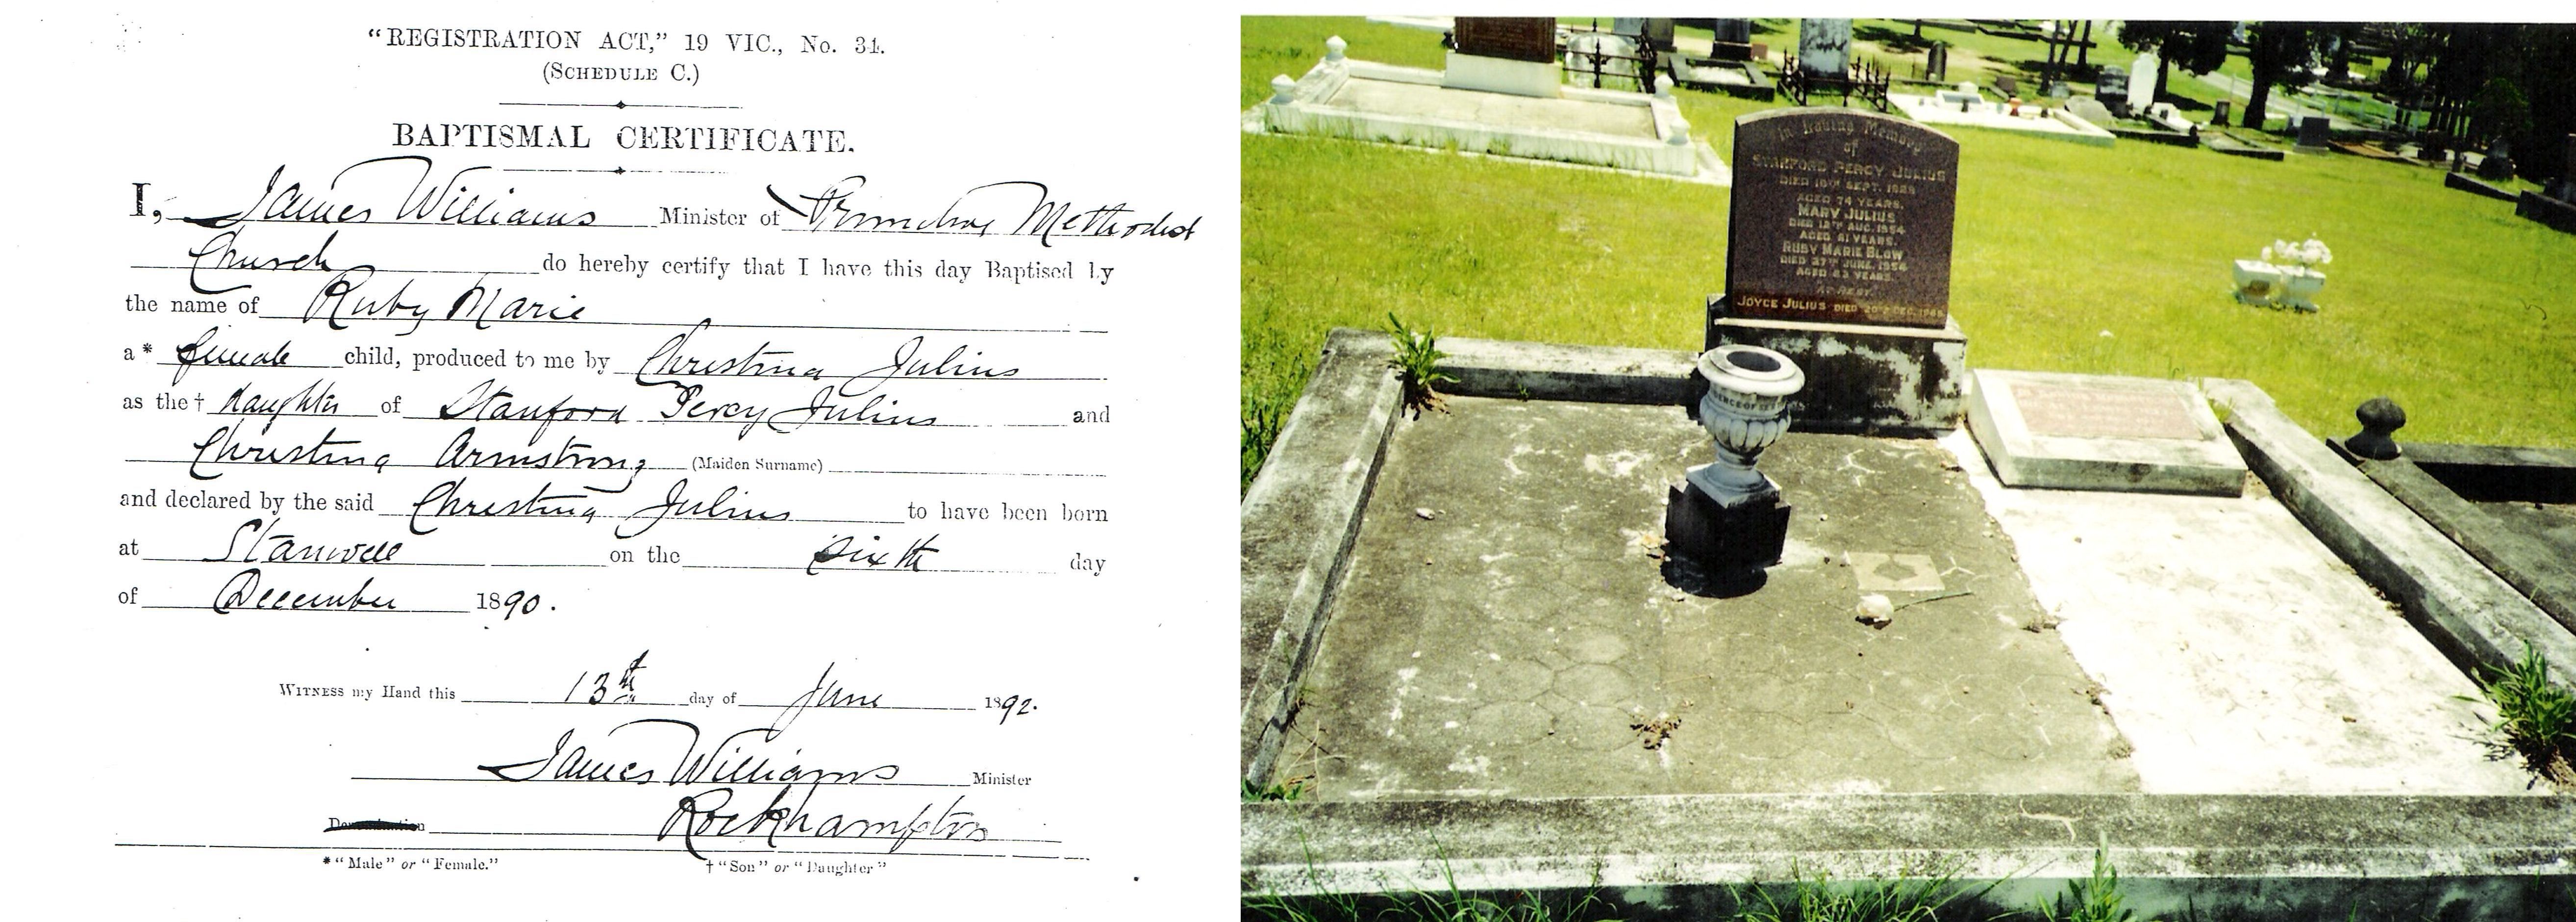 "REGISTRATION ACT," 19 VIC., No. 34.
(SCHEDULE C.)
BAPTISMAL CERTIFICATE.
I, James Williams Minister of Primitive Methodist
Church do hereby certify that I have this day Baptised by
the name of Ruby Marie
a * female child, produced to me by Christina Julius
as the † daughter of Stanford Percy Julius and
Christina Armstrong (Maiden Surname)
and declared by the said Christina Julius to have been born
at Stanwell on the sixth day
of December 1890.
WITNESS my Hand this 13th day of June 1892.
James Williams Minister
Denomination Rockhampton
* "Male" or "Female." † "Son" or "Daughter"
In Loving Memory
of
STANFORD PERCY JULIUS
DIED 18TH SEPT.
AGED 74 YEARS.
MARY JULIUS
DIED AUG. 1954
AGED 81 YEARS.
RUBY MARIE BLOW
DIED 27TH JUNE, 1954
AGED 63 YEARS.
AT REST.
JOYCE JULIUS DIED 20TH DEC.